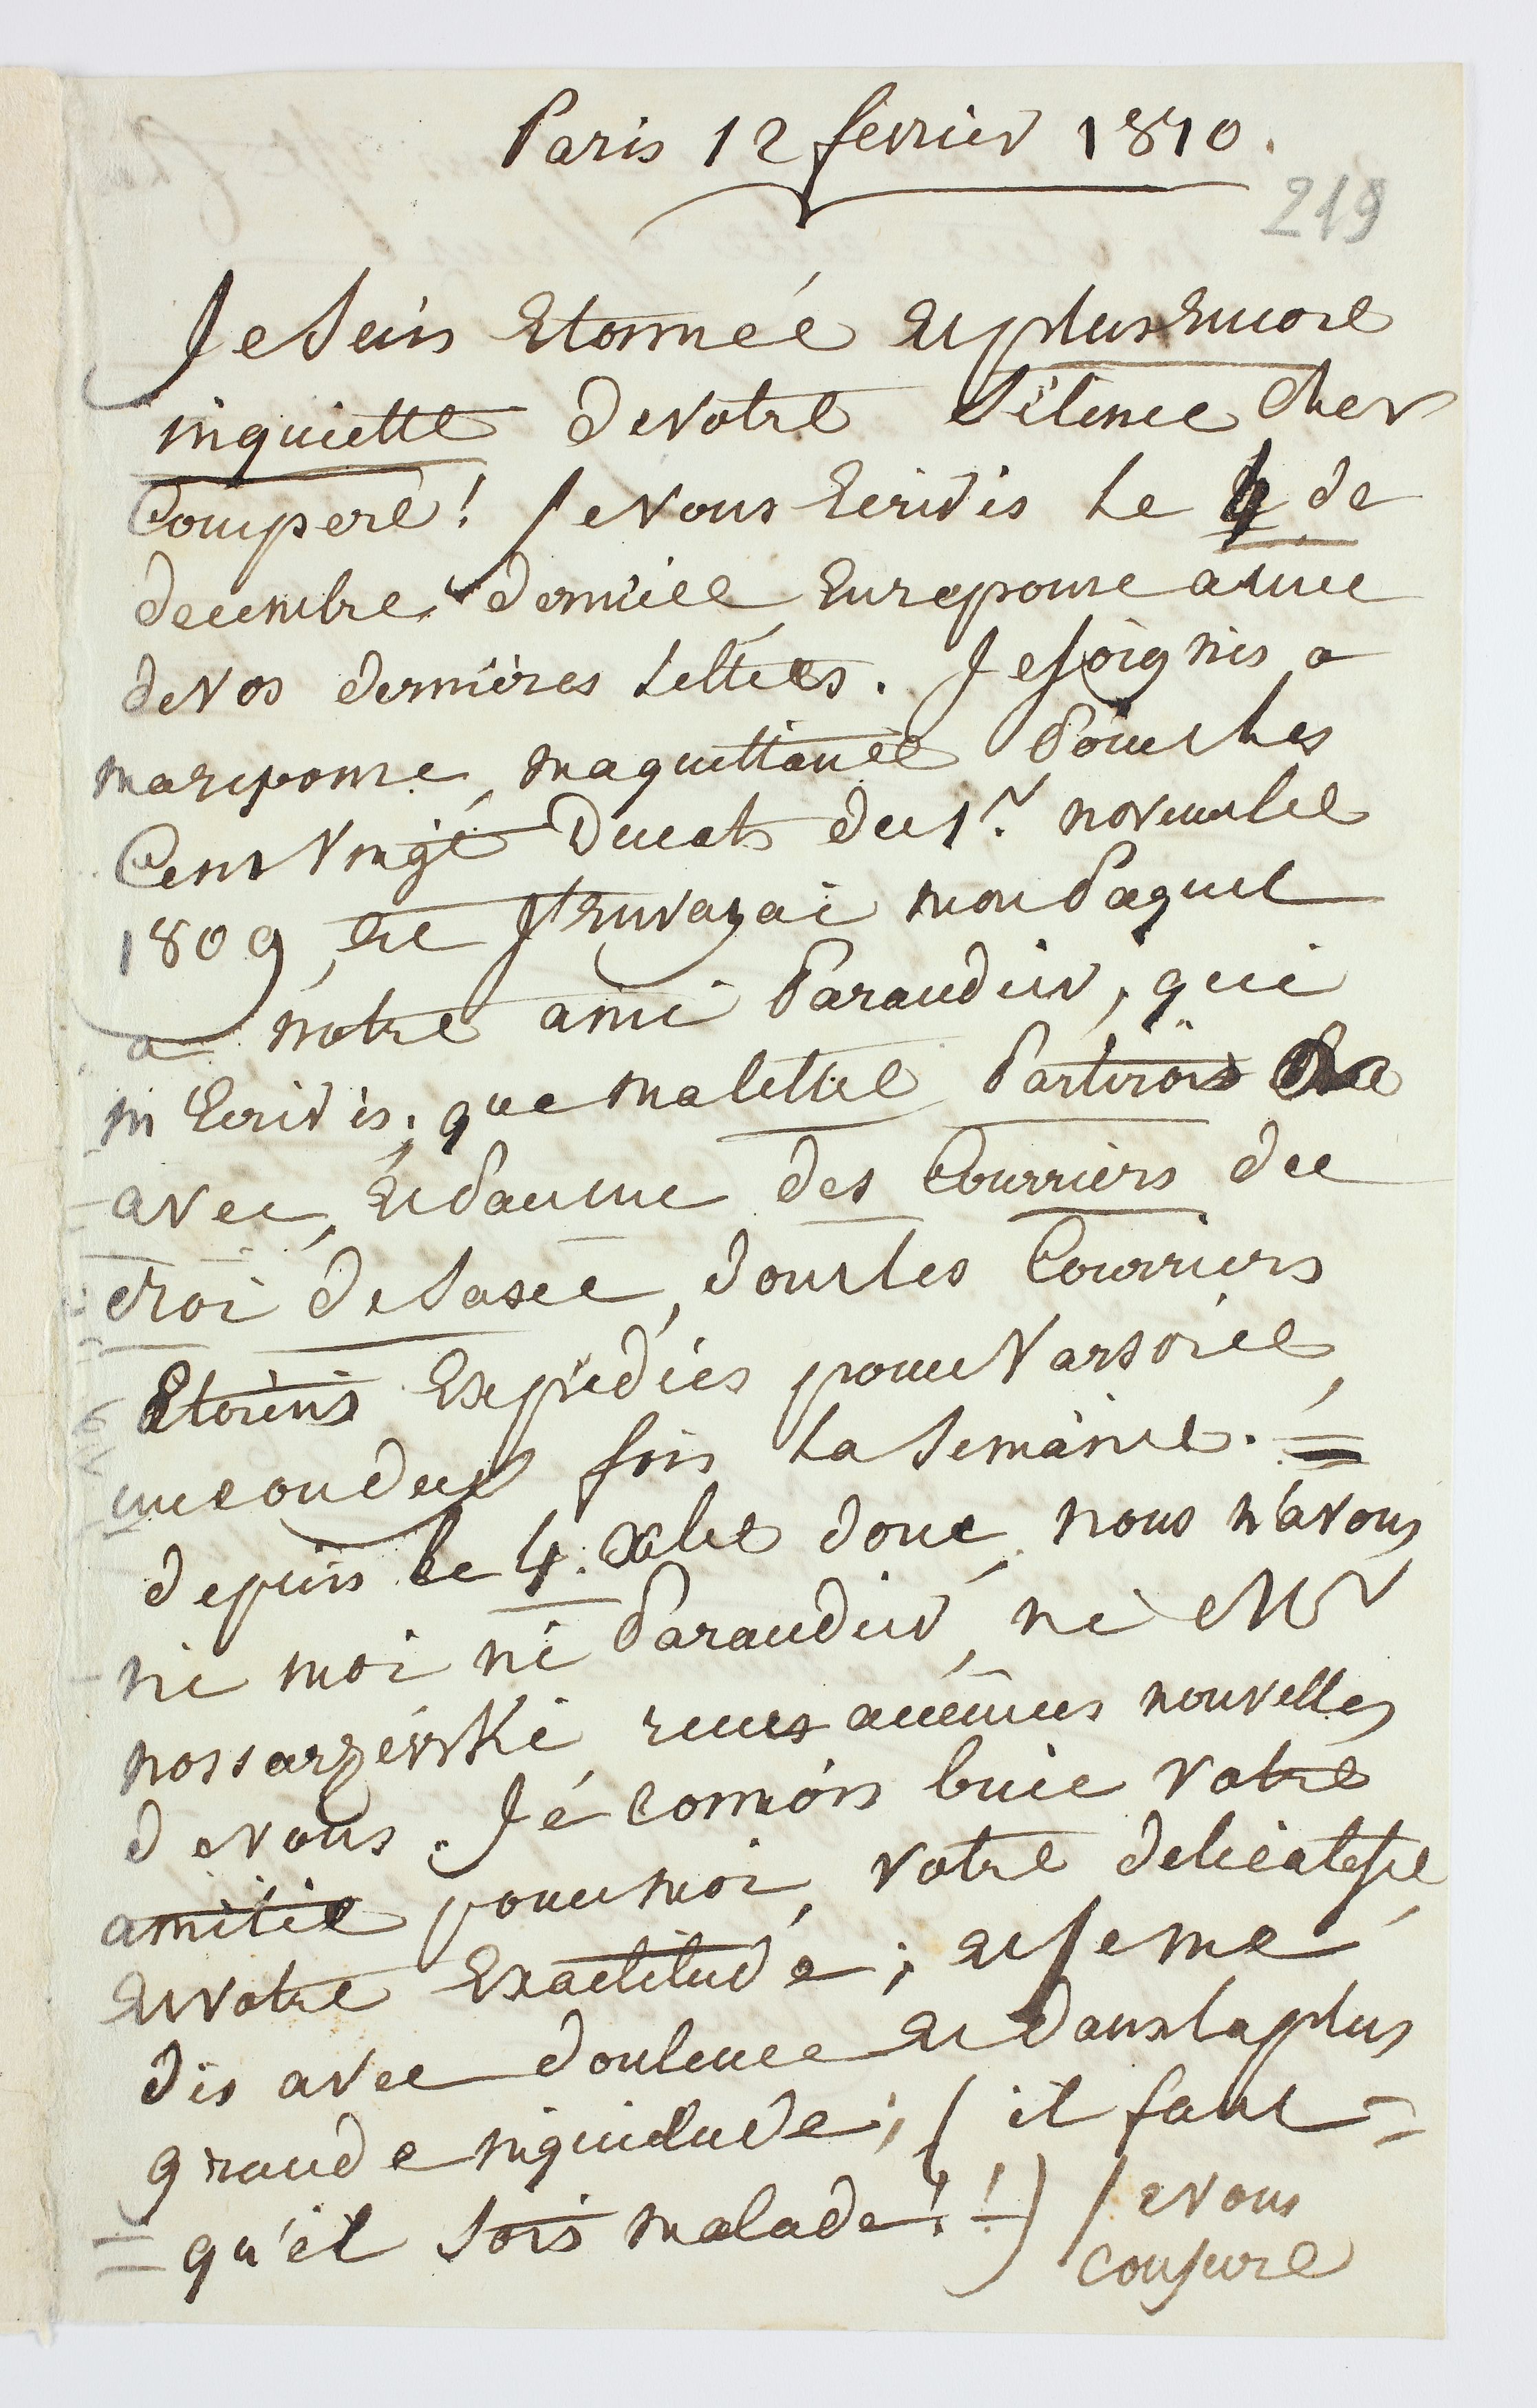 Paris 12 fevrier 1810.
219
Je Suis Etonnée et plus Encore
inquiette de votre Silence cher
Compere! Je vous Ecrivis le 4 de
decembre dernier En reponse a une
de vos dernières Lettres. Je joignis a
ma reponse, ma quittance Pour les
Cent Vingt Ducats du 1r. novembre
1809, et J'envoyai mon Paquet
a notre ami Parandier, qui
m'Ecrivis, que ma lettre Partirois
avec, et Par un des Courriers du
roi de Saxe, dont les Courriers
Etoient Expediés pour Varsovie,
une ou deux fois la Semaine. =
depuis le 4. Xbre donc, nous n'avons
ni moi ni Parandier, ni Mr
Kossarzevski reçus aucunes nouvelles
de vous. Je connois bien votre
amitié pour moi, votre delicatesse,
et votre Exactitude; et Je me
dis avec douleur et dans la plus
grande inquietude; ( il faut =
= qu'il Sois malade!!) Je vous
conjure